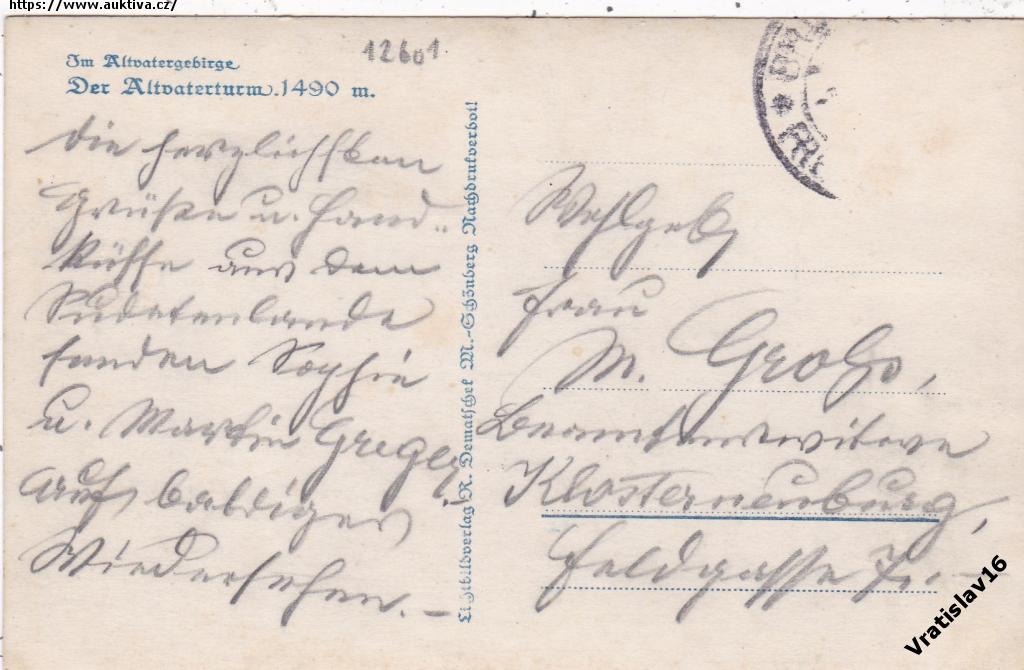 https://www.auktiva.cz/
12601
Im Altvatergebirge
Der Altvaterturm. 1490 m.
die herzlichsten
Grüße u. Hand-
küsse aus dem
Sudetenlande
senden Sophie
u. Martin Greger
auf baldiges
Wiedersehen. –
Lichtbildverlag R. Demuth, M.-Schönberg Nachdruck verboten
Wohlgeb.
Frau
M. Groho,
Beamtenswitwe
Klosterneuburg,
Feldgasse
Vratislav16